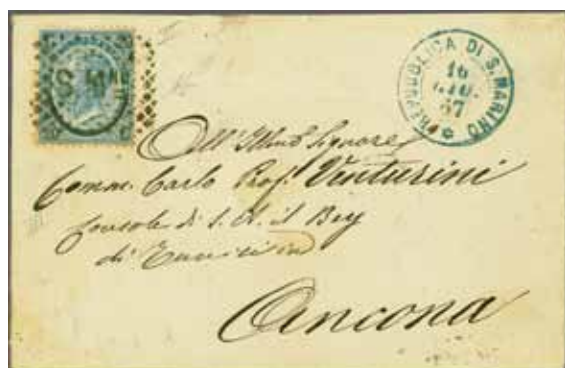 S. Mno
REPUBBLICA DI S. MARINO
16
GIU.
67
All'Illmo Signore
Comm. Carlo Prof. Venturini
Console di S. A. il Bey
di
Ancona